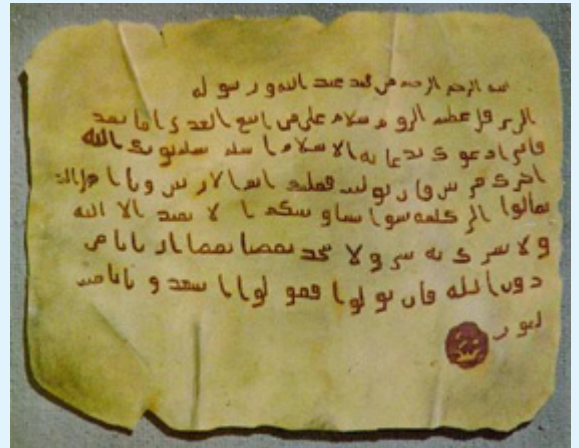 بسم الرحمن الرحيم من محمد عبد الله و رسوله
الى هرقل عظيم الروم سلام على من اتبع الهدى اما بعد
فانى ادعوك بدعاية الاسلام اسلم تسلم يوتك الله
اجرك مرتين فان توليت فعليك اثم و يا اهل
تعالوا الى كلمة سوا و بينكم ا لا نعبد الا الله
و لا نشرك به و لا يتخذ بعضنا بعضا اربابا من
دون الله فان تولوا فقولوا اشهدوا بانا مس
لمون